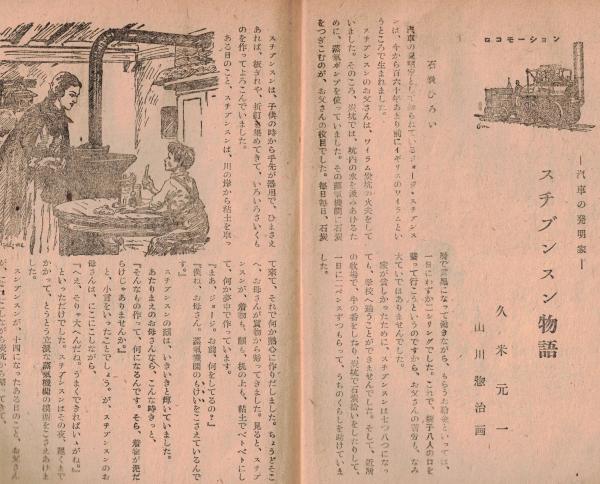 ロコモーション
―汽車の発明家―
スチブンスン物語
久米元一
山川惣治画
石炭ひろい
汽車の発明家として知られているジョージ・スチブンス
ンは、今から百六十年あまり前にイギリスのワイラムとい
うところで生まれました。
スチブンスンのお父さんは、ワイラム炭坑の火夫をして
いました。そのころ、炭坑では、坑内の水を汲みあげるた
めに、蒸氣ポンプを使っていました。その蒸氣機関に石炭
をつぎこむのが、お父さんの役目でした。毎日毎日、石炭
になって働きながら、もらうお給金といっては、
一日にわずか二シリングでした。これで、親子八人の口を
養って行こうというのですから、お父さんの苦労も、なみ
大ていではありませんでした。
家が貧しかったために、スチブンスンは七つ八つになっ
ても、学校へ通うことができませんでした。そして、近所
の牧場で、牛の番をしたり、炭坑で石炭拾いをしたりして、
一日に二ペンスずつもらって、うちのくらしを助けていま
した。
スチブンスンは、子供の時から手先が器用で、ひまさえ
あれば、板ぎれや、折釘を集めてきて、いろいろさいくも
のを作ってよろこんでいました。
ある日のこと、スチブンスンは、川の岸から粘土を取っ
て来て、それで何か熱心に作りだしました。ちょうどそこ
へ、お母さんが買物から帰ってきました。見ると、スチブ
ンスンが、着物も、顔も、机の上も、粘土でベトベトにし
て、何か夢中で作っています。
『まあ、ジョージ。お前、何をしてるの？』
『僕ね、お母さん。蒸氣機関のもけいをこさえているんで
す。』
スチブンスンの顔は、いきいきと輝いていました。
あたりまえのお母さんなら、こんな時きっと、
『そんなもの作って、何になるんです。そら、着物が泥だ
らけじゃありませんか。』
と、小言をいったことでしょう。が、スチブンスンのお
母さんは、にこにこしながら、
『へえ、そりゃ大へんだね。うまくできればいいがね。』
といっただけでした。スチブンスンはその夜、遅くまで
かかって、とうとう立派な蒸氣機関の模型をこさえあげま
した。
スチブンスンが、十四になったある日のこと、お父さん